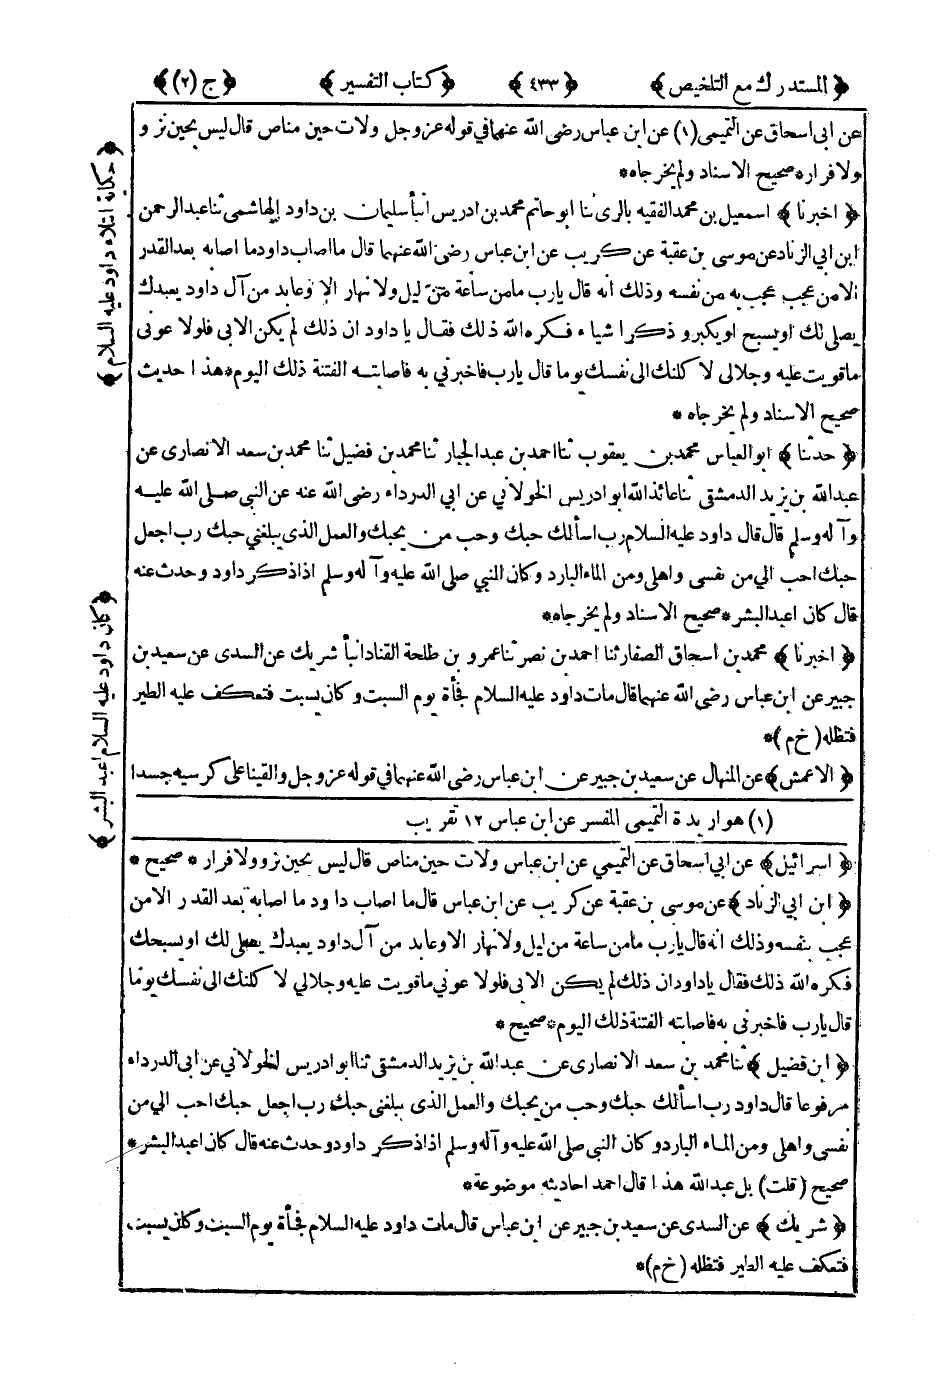 ﴿ المستدرك مع التلخيص ﴾ ﴿ ٤٣٣ ﴾ ﴿ كتاب التفسير ﴾ ﴿ ج (٢) ﴾
عن ابى اسحاق عن التميمى (١) عن ابن عباس رضى الله عنهما في قوله عز وجل ولات حين مناص قال ليس بحين نز و
ولا فرار * صحيح الاسناد ولم يخرجاه *
﴿ اخبرنا ﴾ اسمعيل بن محمد الفقيه بالرى ثنا ابو حاتم محمد بن ادريس انبأ سليمان بن داود الهاشمى ثنا عبد الرحمن
ابن ابي الزناد عن موسى بن عقبة عن كريب عن ابن عباس رضى الله عنهما قال ما اصاب داود ما اصابه بعد القدر
الا من عجب عجب به من نفسه وذلك أنه قال يارب ما من ساعة من ليل ولا نهار الا وعابد من آل داود يعبدك
يصلى لك او يسبح او يكبر و ذكر اشياء فكره الله ذلك فقال يا داود ان ذلك لم يكن الا بى فلولا عونى
ما قويت عليه وجلالى لا كلنك الى نفسك يوما قال يارب فاخبرني به فاصابته الفتنة ذلك اليوم * هذا حديث
صحيح الاسناد ولم يخرجاه *
﴿ حدثنا ﴾ ابو العباس محمد بن يعقوب ثنا احمد بن عبد الجبار ثنا محمد بن فضيل ثنا محمد بن سعد الانصارى عن
عبد الله بن يزيد الدمشقى ثنا عائذ الله ابو ادريس الخولاني عن ابي الدرداء رضى الله عنه عن النبي صلى الله عليه
وآله وسلم قال قال داود عليه السلام رب اسألك حبك وحب من يحبك والعمل الذى يبلغني حبك رب اجعل
حبك احب الي من نفسى واهلى ومن الماء البارد وكان النبي صلى الله عليه وآله وسلم اذا ذكر داود وحدث عنه
قال كان اعبد البشر * صحيح الاسناد ولم يخرجاه *
﴿ اخبرنا ﴾ محمد بن اسحاق الصفار ثنا احمد بن نصر ثنا عمرو بن طلحة القناد انبأ شريك عن السدى عن سعيد بن
جبير عن ابن عباس رضى الله عنهما قال مات داود عليه السلام فجأة يوم السبت وكان يسبت فتعكف عليه الطير
فتظله ( خ م ) *
﴿ الاعمش ﴾ عن المنهال عن سعيد بن جبير عن ابن عباس رضى الله عنهما في قوله عز وجل والقينا على كرسيه جسدا
(١) هو اربدة التميمى المفسر عن ابن عباس ١٢ تقريب
﴿ اسرائيل ﴾ عن ابي اسحاق عن التميمي عن ابن عباس ولات حين مناص قال ليس بحين نزو ولا فرار * صحيح *
﴿ ابن ابي الزناد ﴾ عن موسى بن عقبة عن كريب عن ابن عباس قال ما اصاب داود ما اصابه بعد القدر الا من
عجب بنفسه وذلك انه قال يارب ما من ساعة من ليل ولا نهار الا وعابد من آل داود يعبدك يصلى لك او يسبحك
فكره الله ذلك فقال يا داود ان ذلك لم يكن الا بى فلولا عوني ما قويت عليه وجلالي لا كلنك الى نفسك يوما
قال يارب فاخبرنى به فاصابته الفتنة ذلك اليوم * صحيح *
﴿ ابن فضيل ﴾ ثنا محمد بن سعد الانصارى عن عبد الله بن يزيد الدمشقى ثنا ابو ادريس الخولاني عن ابى الدرداء
مرفوعا قال داود رب اسألك حبك وحب من يحبك والعمل الذى يبلغنى حبك رب اجعل حبك احب الي من
نفسى واهلى ومن الماء البارد وكان النبي صلى الله عليه وآله وسلم اذا ذكر داود وحدث عنه قال كان اعبد البشر *
صحيح (قلت) بل عبد الله هذا قال احمد احاديثه موضوعة *
﴿ شريك ﴾ عن السدى عن سعيد بن جبير عن ابن عباس قال مات داود عليه السلام فجأة يوم السبت وكان يسبت
فتعكف عليه الطير فتظله ( خ م ) *
﴿ حكاية ابتلاء داود عليه السلام ﴾
﴿ كان داود عليه السلام اعبد البشر ﴾